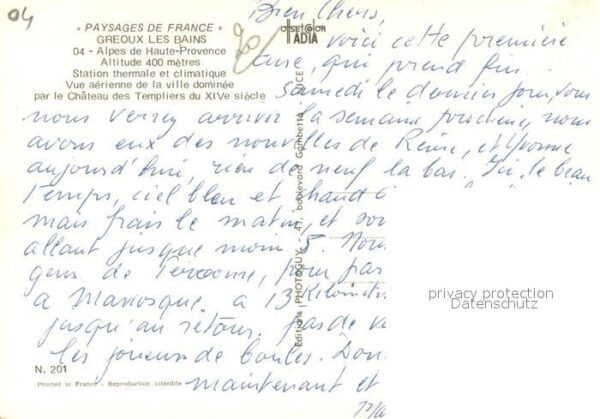 04
« PAYSAGES DE FRANCE »
GREOUX LES BAINS
04 - Alpes de Haute-Provence
Altitude 400 mètres
Station thermale et climatique
Vue aérienne de la ville dominée
par le Château des Templiers du XIVe siècle
Bien Chers,
voici cette première
cure, qui prend fin
samedi le dernier jour, vous
nous verrez arriver la semaine prochaine, nous
avons eux des nouvelles de Reine, et Yvonne
aujourd'hui, rien de neuf la bas. Ici, le beau
Temps, ciel bleu et chaud
mais frais le matin, et
allant jusque moin 5.
gens de
a Manosque a 13 Kilomètr
jusqu'au retour. pas de
les joueurs de boules.
maintenant et
Editions PHOTOGUY - 41, boulevard Gambetta
ADIA
privacy protection
Datenschutz
N. 201
Printed in France - Reproduction interdite